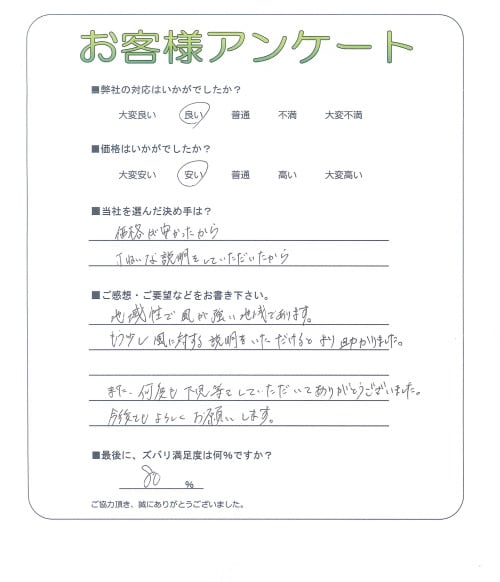 お客様アンケート
■弊社の対応はいかがでしたか？
大変良い 良い 普通 不満 大変不満
■価格はいかがでしたか？
大変安い 安い 普通 高い 大変高い
■当社を選んだ決め手は？
価格が安かったから
丁ねいな説明をしていただいたから
■ご感想・ご要望などをお書き下さい。
地域性で風が強い地域であります。
もう少し風に対する説明をいただけるとより助かりました。
また、何度も下見等でしていただいてありがとうございました。
今後ともよろしくお願いします。
■最後に、ズバリ満足度は何％ですか？
80 %
ご協力頂き、誠にありがとうございました。